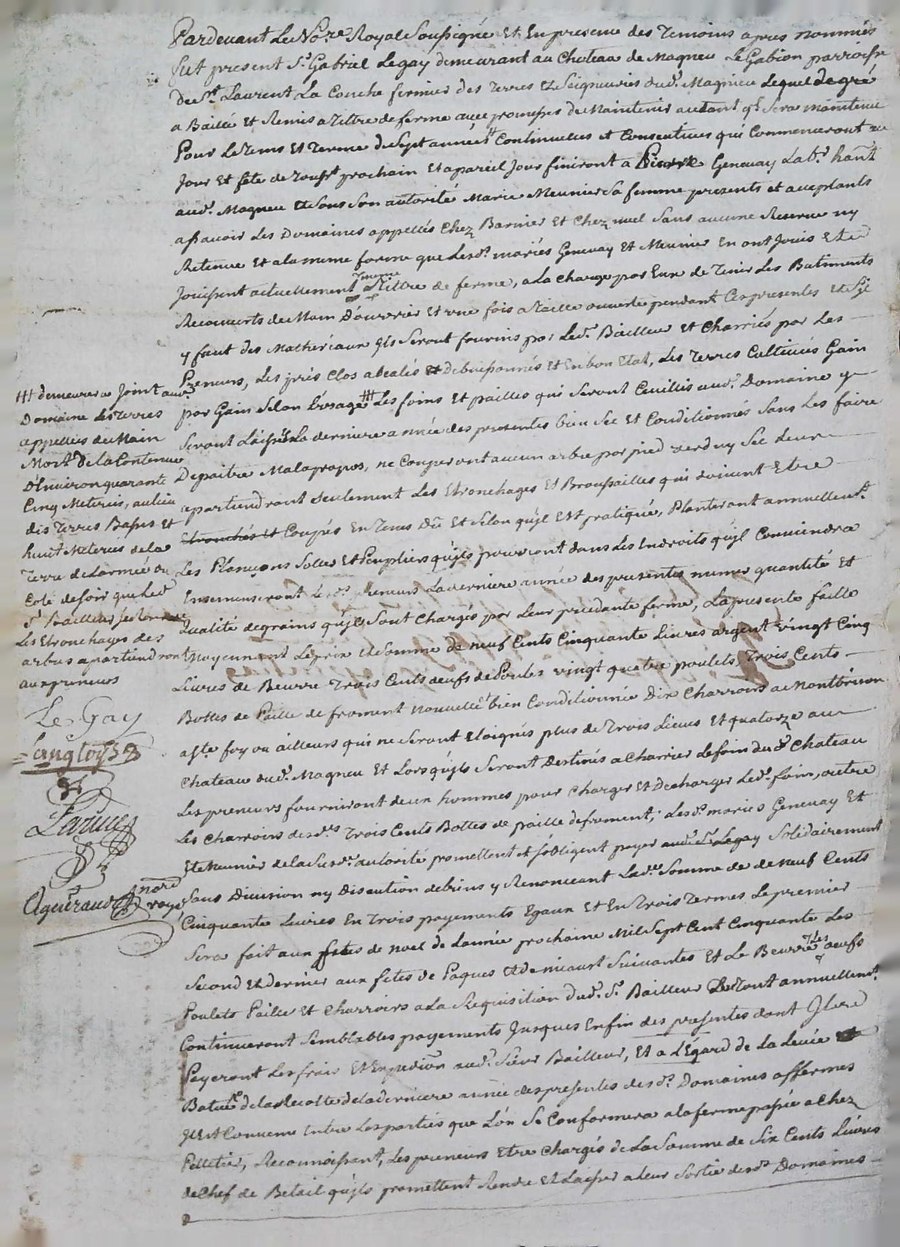 Pardevant Le No.re Royal Soussigné et En presence des Temoins apres nommés
fut present S.r Gabriel Legay demeurant au Chateau de Magneu Le Gabion parroisse
De S.t Laurent La Conche fermier des Terres et Seigneuries dud. Magnieu Lequel de gré
a Baillé et Remis a Titre de ferme avec promesses de Maintenir autant q.l Sera maintenu
Pour Le Tems et Terme de Sept années Continuelles et Consecutives qui Commenceront au
Jour et fete de Touss.t prochain Et apareil Jour finiront a Pierre Genevay Lab.r hant
aud. Magneu et de Sous Son autorité Marie Meunier Sa femme presents et acceptants
assavoir Les Domaines appellés Chez Barnier Et Chez nuel Sans aucune Reserve ny
Retenue Et a la meme forme que Lesd. mariés Genevay Et Meunier En ont Jouis Et En
Jouissent actuellement a Titre de ferme, a la Charge par Eux de Tenir Les Batiments
Recouverts de Main D'ouvrier Et une fois a Taille ouverte pendant Ces presentes et S'il
y faut des Matheriaux ils Seront fournis par Led. Bailleur Et Charriés par Les
Preneurs, Les prés Clos a Bealés et debuissonnés Et En bon Etat, Les Terres Cultivées Gain
par Gain Selon L'usage Les foins Et pailles qui Seront Ceuillis aud. Domaine y
Seront Laissés La derniere année des presentes bien Sec et Conditionnés Sans Les faire
Depaitre Malapropos, ne Couperont aucun arbre par pied verd ny Sec Leur
apartiendront seulement Les Etronchages Et Broussailles qui doivent Etre
Etronchés et Coupés En Tems Dû Et Selon qu'il Est pratiqué, Planteront annuellem.t
Les Plançons Solle Et Peupliers qu'ils pourront dans Les Endroits qu'il Conviendra
Ensemenceront Lesd. preneurs La derniere année des presentes meme quantité Et
qualité de grains qu'ils Sont Chargés par Leur precedante ferme, La presente faitte
Moyennant Le prix Et Somme de neuf Cents Cinquante Livres argent vingt Cinq
Livres de Beurre Trois Cents oeufs de Poules vingt quatre poulets, Trois Cents
Bottes de Paille de froment bien Conditionnée Dix Charrois a Montbrison
a S.te foy ou ailleurs qui ne Seront Eloignés plus de Trois Lieues Et quatorze au
Chateau dud. Magneu Et Lorsqu'ils Seront Destinés a Charrier Le foin dud. Chateau
Les preneurs fourniront deux hommes pour Charger Et Decharger Led. foin, outre
Les Charrois desd. Trois Cents Bottes de paille de froment; Lesd. mariés Genevay Et
Meunier de la Susd. autorité promettent et s'obligent payer aud. S.r Legay Solidairement
Sans Division ny Discution de biens y Renoncant Lad. Somme de de neuf Cents
Cinquante Livres En Trois payements Egaux Et En Trois Termes Le premier
Sera fait aux fetes de noel de L'année prochaine Mil Sept Cent Cinquante Les
Second Et dernier aux fetes de Paques Et Suivantes Et Le Beurre oeufs
Poulets Paille Et Charrois a la Requisition dud. S.r Bailleur Le Tout annuellem.t
Continueront Semblables payements Jusques En fin des presentes dont Ils
Payeront Les frais Et Expedition aud. Sieur Bailleur, Et a L'Egard de La Levée
de la Recolte de la derniere année des presentes desd. Domaines affermés
Il Est Convenu Entre Les parties que L'on Se Conformera a la ferme passée a Chez
Pelletier, Reconnoissant, Les preneurs Etre Chargés de La Somme de Six Cents Livres
de Chef de Betail qu'ils promettent Rendre Et Laisser a Leur Sortie desd. Domaines
demeurera Joint aux
Domaine Les Terres
appellées du Main
Mort de la Contenue
D'Environ quarante
Cinq Meterées, au lieu
dis Terres Basses et
huit Meterées de la
Terre de
Coté de soir que Led.
S.r Bailleur
Les Etronchages des
arbres apartiendront
aux preneurs
Le Gay
Langloys
Agueraud No.re
royal